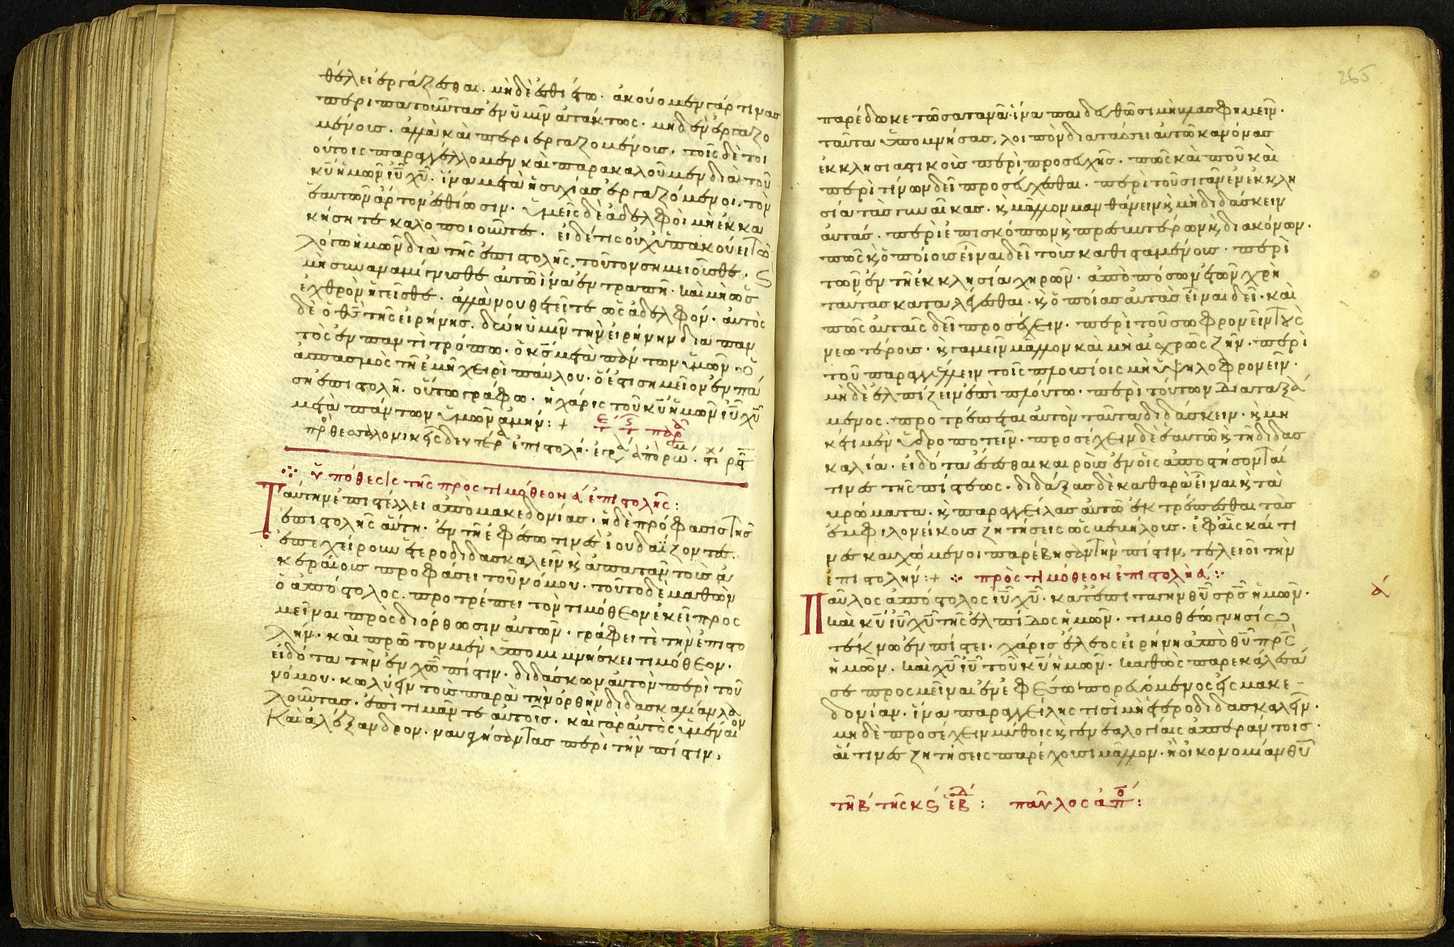 θέλει ἐργάζεσθαι. μηδὲ ἐσθιέτω. ἀκούομεν γάρ τινας
περιπατοῦντας ἐν ὑμῖν ἀτάκτως. μηδὲν ἐργαζο
μένους. ἀλλὰ καὶ περιεργαζομένους. τοῖς δὲ τοι
ούτοις παραγγέλλομεν καὶ παρακαλοῦμεν διὰ τοῦ
κυ ἡμῶν ιυ χυ. ἵνα μετὰ ἡσυχίας ἐργαζόμενοι, τὸν
ἑαυτῶν ἄρτον ἐσθίωσιν. ὑμεῖς δὲ ἀδελφοὶ μὴ ἐκκα
κήσητε καλοποιοῦντες. εἰ δέ τις οὐχ ὑπακούει τῶ
λόγω ἡμῶν διὰ τῆς ἐπιστολῆς, τοῦτον σημειοῦσθε.
μὴ συναναμίγνυσθε αὐτῶ ἵνα ἐντραπῆ. καὶ μὴ ὡς
ἐχθρὸν ἡγεῖσθε. ἀλλὰ νουθετεῖτε ὡς ἀδελφόν. αὐτὸς
δὲ ὁ θς τῆς εἰρήνης. δώη ὑμῖν τὴν εἰρήνην διὰ παν
τὸς ἐν παντὶ τρόπω. ὁ κς μετὰ πάντων ὑμῶν. ὁ
ἀσπασμὸς τῆ ἐμῆ χειρὶ παύλου. ὅ ἐστι σημεῖον ἐν πά
ση ἐπιστολῆ. οὕτω γράφω. ἡ χάρις τοῦ κυ ἡμῶν ιυ χυ
μετὰ πάντων ὑμῶν ἀμήν: +
ὑπόθεσις τῆς πρὸς τιμόθεον α ἐπιστολῆς:
Ταύτην ἐπιστέλλει ἀπὸ μακεδονίας. ἡ δὲ πρόφασις τῆς
ἐπιστολῆς αὕτη. ἐν τῆ ἐφέσω τινὲς ἰουδαΐζοντες.
ἐπεχείρουν ἑτεροδιδασκαλεῖν κ ἀπατᾶν τοὺς ἀ
κεραίους προφάσει τοῦ νόμου. τοῦτο δὲ μαθὼν
ὁ ἀπόστολος. προτρέπει τὸν τιμόθεον ἐκεῖ προς
μεῖναι πρὸς διόρθωσιν αὐτῶν. γράφει τε τὴν ἐπιστο
λήν. καὶ πρῶτον μὲν ὑπομιμνήσκει τιμόθεον.
εἰδότα τὴν ἐν χω πίστιν. διδάσκων αὐτὸν περὶ τοῦ
νόμου. κωλύειν τοὺς παρὰ τὴν ὀρθὴν διδασκαλίαν λα
λοῦντας. ἐπιτιμᾶν τε αὐτοῖς. καὶ γὰρ αὐτὸς ὑμέναιον
καὶ ἀλέξανδρον. ναυαγήσαντας περὶ τὴν πίστιν,
265
παρέδωκε τῶ σατανᾶ ἵνα παιδευθῶσι μὴ βλασφημεῖν.
ταῦτα ὑπομνήσας, λοιπὸν διατάσσει αὐτῶ κανόνας
ἐκκλησιαστικοὺς περὶ προσευχῆς. πῶς καὶ ποῦ καὶ
περὶ τίνων δεῖ προσεύχεσθαι. περὶ τοῦ σιγᾶν ἐν ἐκκλη
σία τὰς γυναῖκας. κ μᾶλλον μανθάνειν κ μὴ διδάσκειν
αὐτάς. περὶ ἐπισκόπων κ πρεσβυτέρων κ διακόνων.
πῶς κ ὁποίους εἶναι δεῖ τοὺς καθισταμένους. περὶ
τῶν ἐν τῆ ἐκκλησία χηρῶν. ἀπὸ πόσων ἐτῶν χρὴ
ταύτας καταλέγεσθαι. κ ὁποίας αὐτὰς εἶναι δεῖ. καὶ
πῶς αὐταῖς δεῖ προσέχειν. περὶ τοῦ σωφρονεῖν τοὺς
νεωτέρους. κ γαμεῖν μᾶλλον καὶ μὴ αἰσχρῶς ζῆν. περὶ
τοῦ παραγγέλλειν τοῖς πλουσίοις μὴ ὑψηλοφρονεῖν.
μηδὲ ἐλπίζειν ἐπὶ πλούτω. περὶ τούτων διαταξά
μενος. προτρέπεται αὐτὸν ταῦτα διδάσκειν. κ μη
κέτι μὲν ὑδροποτεῖν. προσέχειν δὲ ἑαυτῶ κ τῆ διδασ
καλία. εἰδότα ἔσεσθαι καιροὺς ἐν οἷς ἀποστήσονται
τινες τῆς πίστεως. διδάξας δὲ καθαρὰ εἶναι κ τὰ
βρώματα. κ παραγγείλας αὐτῶ ἐκτρέπεσθαι τὰς
ἐμφιλονείκους ζητήσεις ὡς βεβήλους. ἐφ' αἷς καί τι
νες καυχώμενοι παρέβησαν τὴν πίστιν, τελειοῖ τὴν
ἐπιστολήν: + πρὸς τιμόθεον ἐπιστολὴ α:
Παῦλος ἀπόστολος ιυ χυ. κατ' ἐπιταγὴν θυ σρς ἡμῶν.
καὶ κυ ιυ χυ τῆς ἐλπίδος ἡμῶν. τιμοθέω γνησίω
τέκνω ἐν πίστει. χάρις ἔλεος εἰρήνη ἀπὸ θυ πρς
ἡμῶν. καὶ χυ ιυ τοῦ κυ ἡμῶν. καθὼς παρεκάλεσά
σε προσμεῖναι ἐν ἐφέσω πορευόμενος εἰς μακε
δονίαν. ἵνα παραγγείλης τισὶ μὴ ἑτεροδιδασκαλεῖν.
μηδὲ προσέχειν μύθοις κ γενεαλογίαις ἀπεράντοις.
αἵτινες ζητήσεις παρέχουσι μᾶλλον. ἢ οἰκονομίαν θυ
α
τῆ β τῆς κς ἑβδ: παῦλος ἀπο: